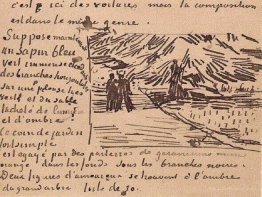 c'est ici des voilures mais la composition
est dans le même genre.
Suppose maintenant
un Sapin bleu
vert immense étendant
des branches horizontales
sur une pelouse très
verte et du sable
tacheté de lumière
et d'ombre.
Ce coin de jardin
fort simple
est égayé par des parterres de géraniums mine
orange dans les fonds sous les branches noires.
Deux figures d'amoureux se trouvent à l'ombre
du grand arbre toile de 30.